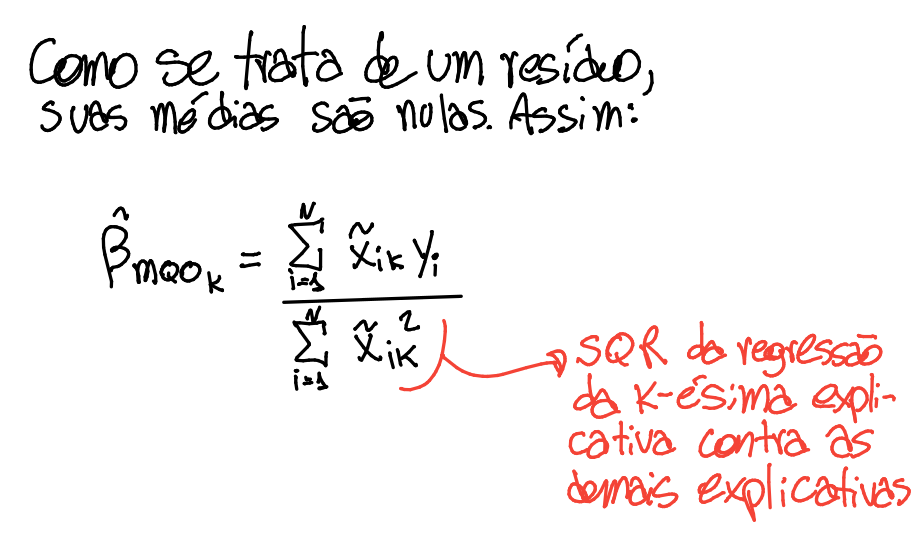 Como se trata de um resíduo,
suas médias são nulas. Assim:
β̂ MQO_K = Σ_{i=1}^{N} x̃_{iK} y_i
Σ_{i=1}^{N} x̃_{iK}²
SQR da regressão
da K-ésima expli-
cativa contra as
demais explicativas